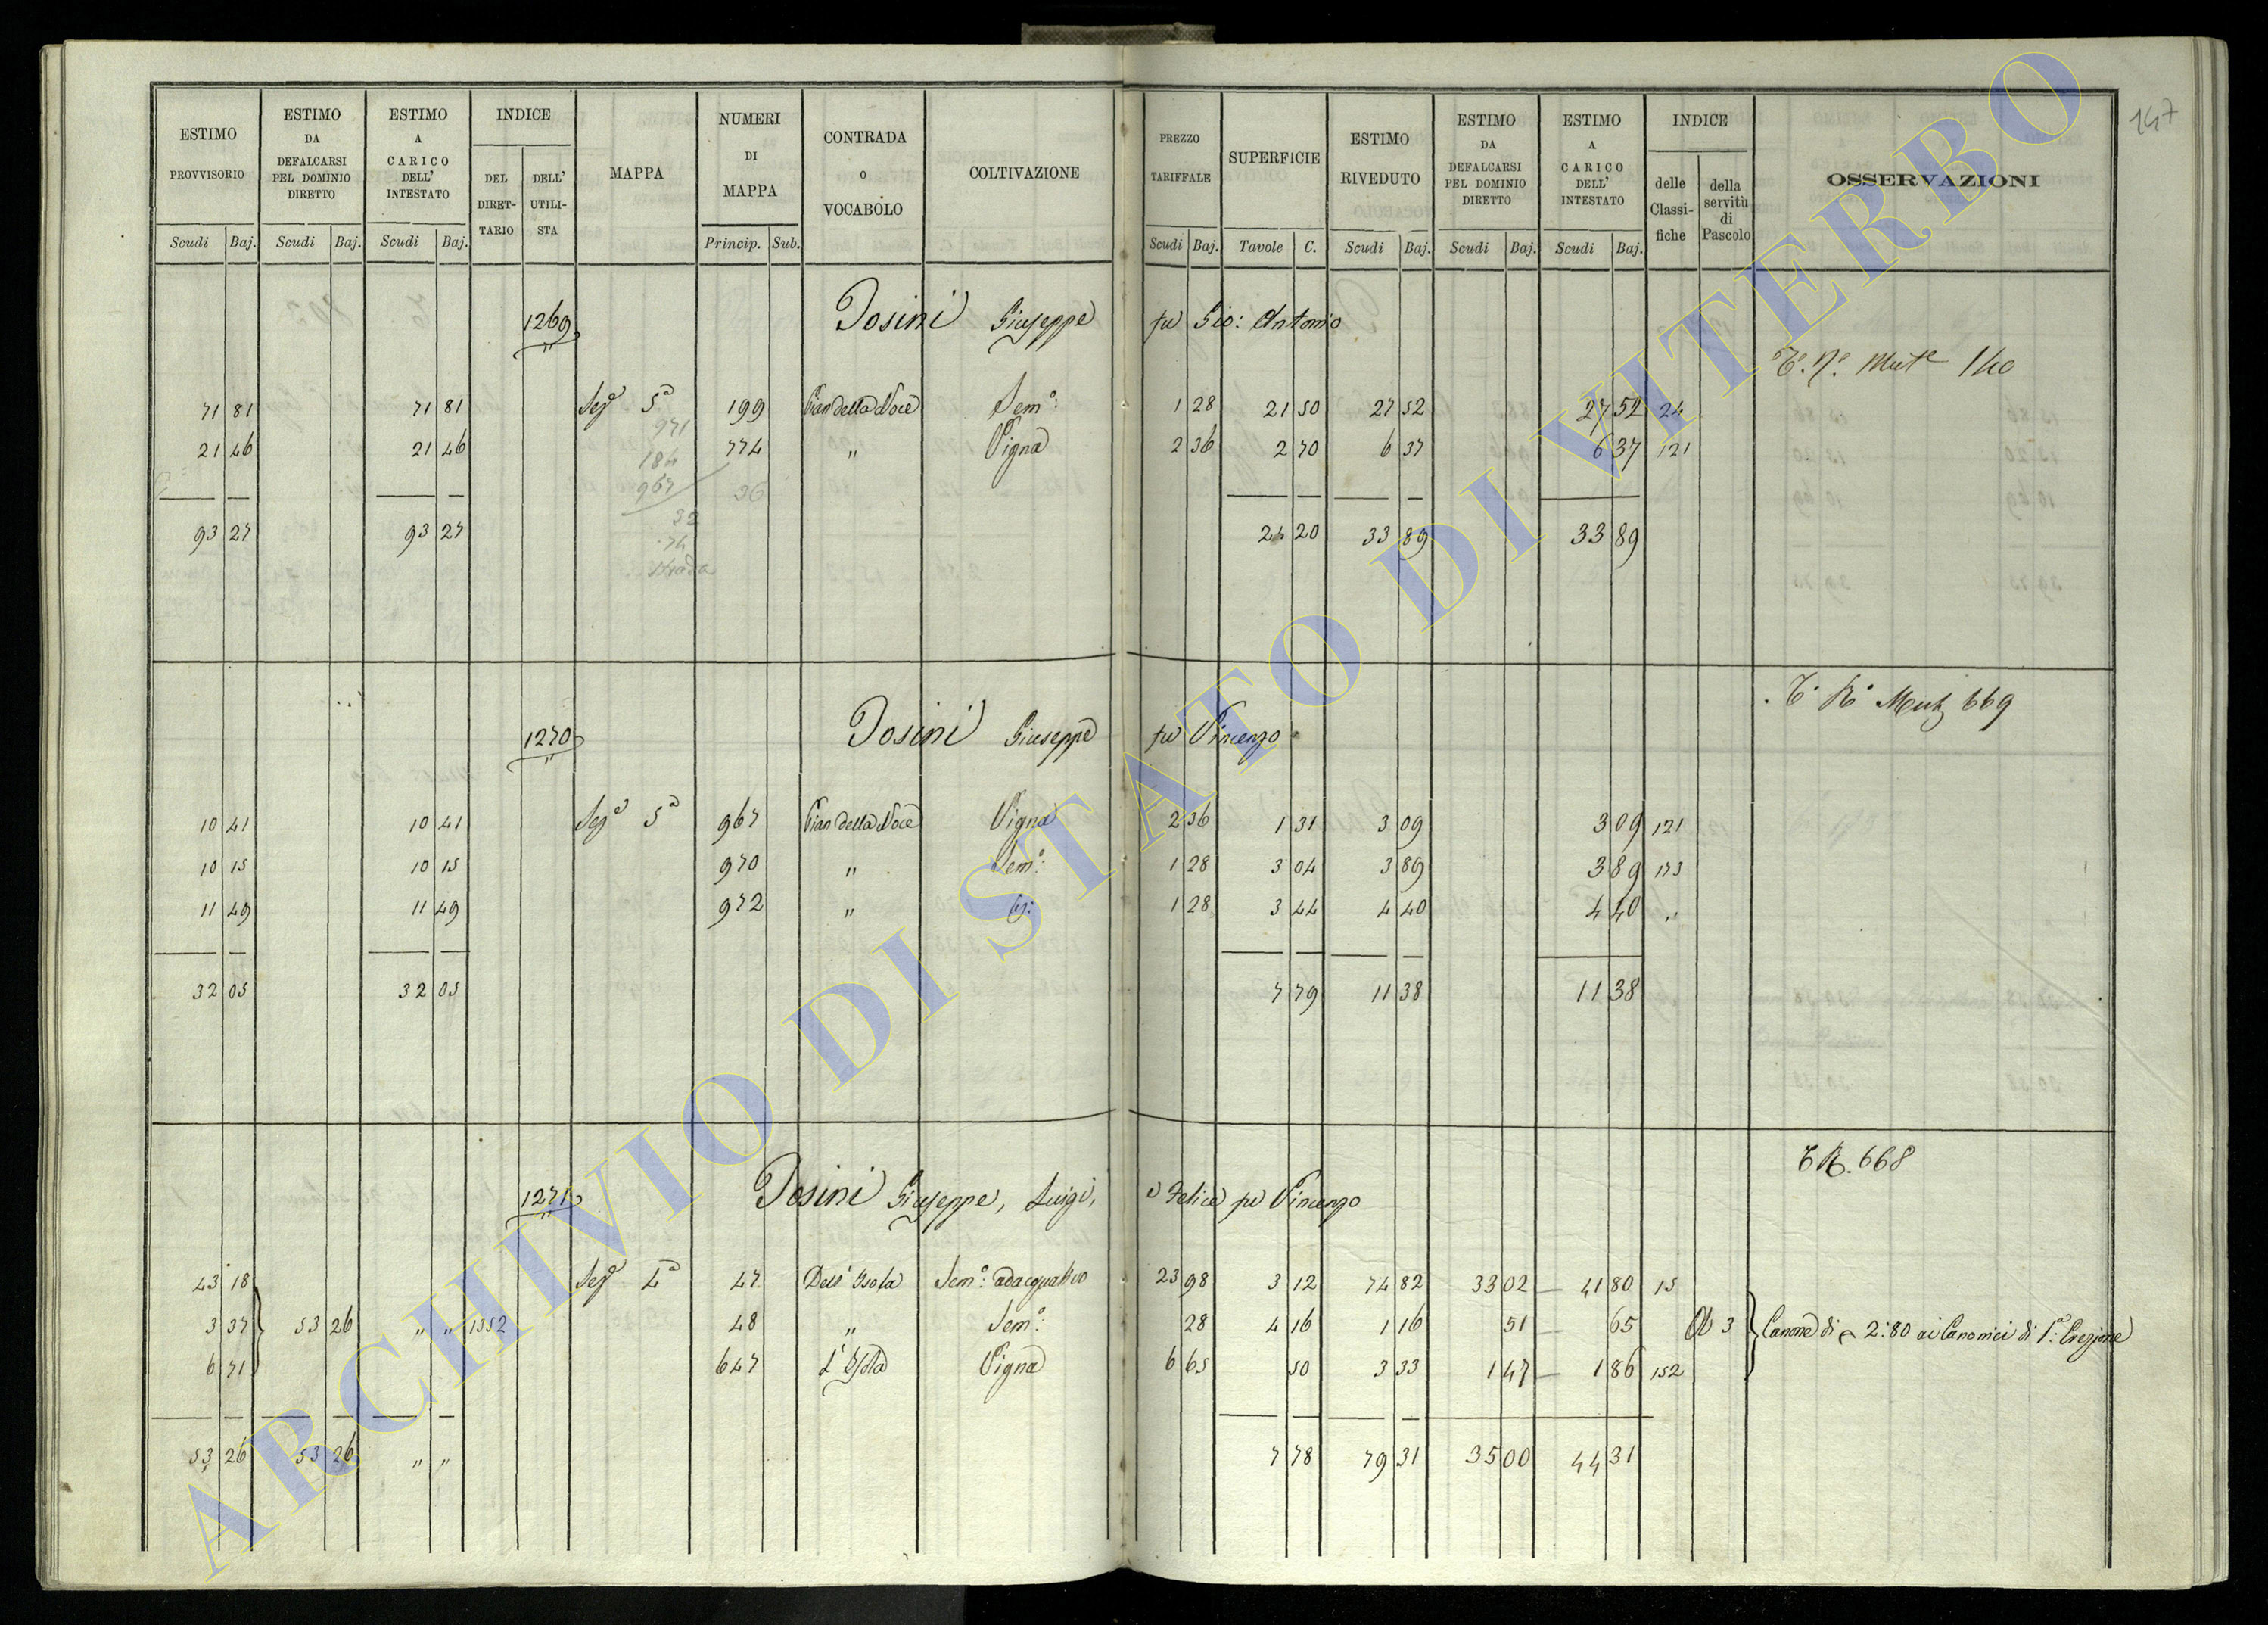 147
ESTIMO PROVVISORIO | ESTIMO DA DEFALCARSI PEL DOMINIO DIRETTO | ESTIMO A CARICO DELL' INTESTATO | INDICE | MAPPA | NUMERI DI MAPPA | CONTRADA O VOCABOLO | COLTIVAZIONE | PREZZO TARIFFALE | SUPERFICIE | ESTIMO RIVEDUTO | ESTIMO DA DEFALCARSI PEL DOMINIO DIRETTO | ESTIMO A CARICO DELL' INTESTATO | INDICE | OSSERVAZIONI
DEL DIRET-TARIO | DELL' UTILI-STA | delle Classi-fiche | della servitù di Pascolo
Scudi | Baj. | Scudi | Baj. | Scudi | Baj. | Princip. | Sub. | Scudi | Baj. | Tavole | C. | Scudi | Baj. | Scudi | Baj. | Scudi | Baj.
1269 Tosini Giuseppe fu Gio: Antonio
140
71 81 71 81 Sez.e 5a 199 Pian della Noce Sem.o: 1 28 21 50 27 52 27 52 24
971
21 46 21 46 774 " Vigna 2 36 2 70 6 37 6 37 121
184
967 36
32
93 27 93 27 24 20 33 89 33 89
74
strada
669
1270 Tosini Giuseppe fu Vincenzo
10 41 10 41 Sez.e 5a 967 Pian della Noce Vigna 2 36 1 31 3 09 3 09 121
10 15 10 15 970 " Sem.o: 1 28 3 04 3 89 3 89 173
11 49 11 49 972 " 1 28 3 44 4 40 4 40 "
32 05 32 05 7 79 11 38 11 38
668
1271 Tosini Giuseppe, Luigi, e Felice fu Vincenzo
43 18 Sez.e 4a 47 Dell' Isola Sem.o: adacquativo 23 98 3 12 74 82 33 02 41 80 15
3 37 53 26 " " 1352 48 " Sem.o: 28 4 16 1 16 51 65 3 Canone di 2:80 ai Canonici di 1a: Erezione
6 71 647 L'Isola Vigna 6 65 50 3 33 1 47 1 86 152
53 26 53 26 " " 7 78 79 31 35 00 44 31
ARCHIVIO DI STATO DI VITERBO